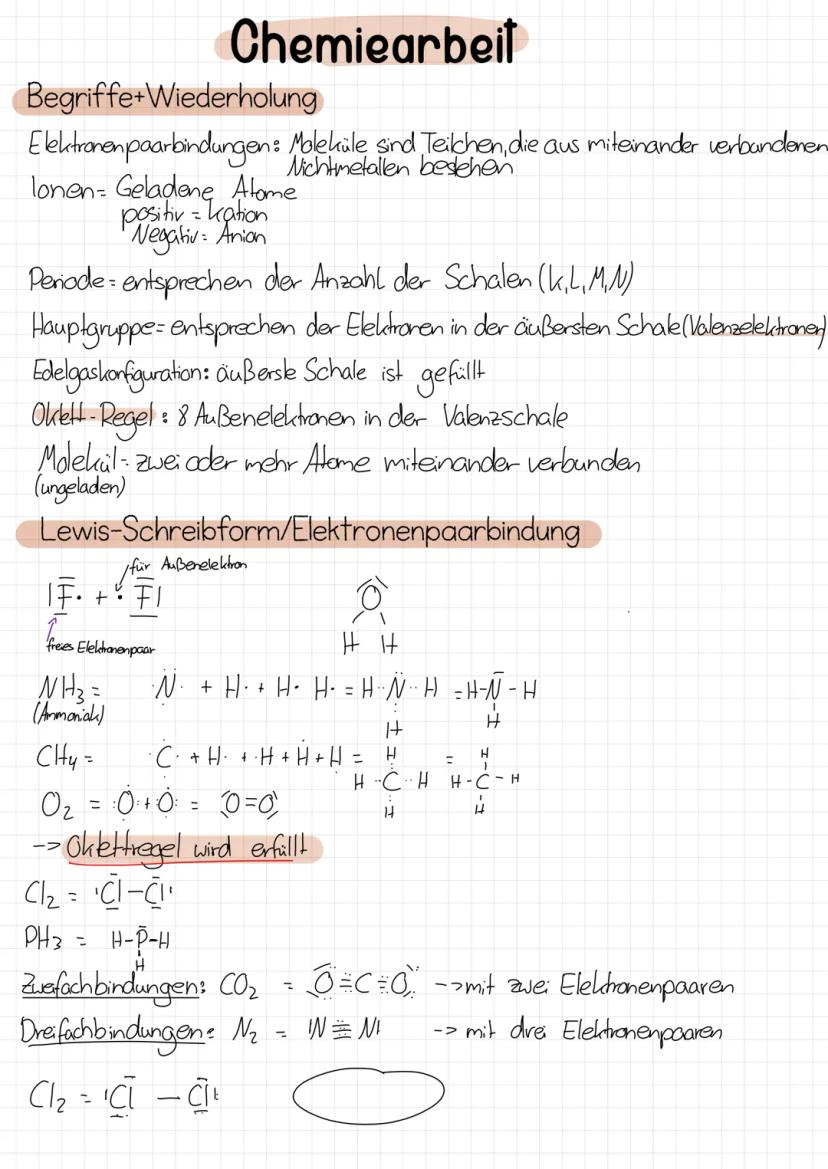 Chemiearbeit
Begriffe+Wiederholung
Elektronenpaarbindungen: Moleküle sind Teilchen, die aus miteinander verbundenen
Nichtmetallen bestehen
Ionen= Geladene Atome
positiv = Kation
Negativ= Anion
Periode= entsprechen der Anzahl der Schalen (K,L,M,N)
Hauptgruppe= entsprechen der Elektronen in der äußersten Schale (Valenzelektronen)
Edelgaskonfiguration: äußerste Schale ist gefüllt
Oktett-Regel: 8 Außenelektronen in der Valenzschale
Molekül= zwei oder mehr Atome miteinander verbunden
(ungeladen)
Lewis-Schreibform/Elektronenpaarbindung
für Außenelektron
|F· + ·F| O
freies Elektronenpaar H H
NH3 = ·N· + H· + H· H· = H··N··H = H-N-H
(Ammoniak) H H
CH4 = ·C· + H· + ·H + H + H = H = H
H··C··H H-C-H
H H
O2 = :O + O: = O=O
-> Oktettregel wird erfüllt
Cl2 = |Cl-Cl|
PH3 = H-P-H
H
Zweifachbindungen: CO2 = O=C=O -> mit zwei Elektronenpaaren
Dreifachbindungen: N2 = |N≡N| -> mit drei Elektronenpaaren
Cl2 = |Cl - Cl|